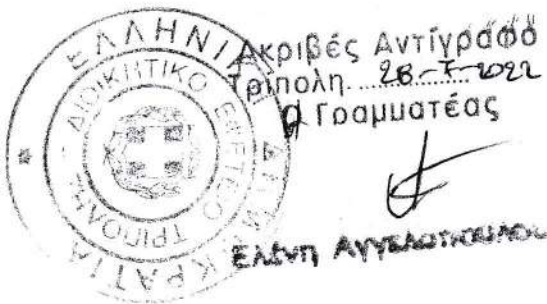 ΕΛΛΗΝΙΚΗ ΔΗΜΟΚΡΑΤΙΑ
ΔΙΟΙΚΗΤΙΚΟ ΕΦΕΤΕΙΟ ΤΡΙΠΟΛΗΣ
Ακριβές Αντίγραφο
Τρίπολη 28-7-2022
Γραμματέας
Ελένη Αγγελοπούλου